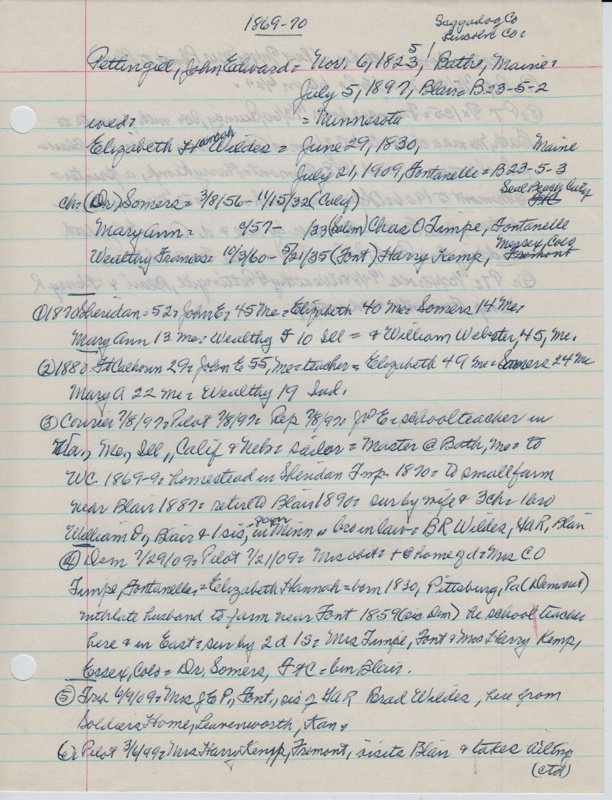 1869-70
Saggadog Co
Lincoln Co:
Pettingil, John Edward = Nov. 6, 1823, 5 / Bathe, Maine:
July 5, 1897, Blair = B23-5-2
wed: = Minnesota
Elizabeth Hannah Wildes = June 29, 1830, Maine
July 21, 1909, Fontanelle = B23-5-3
ch: (Dr) Somers = 3/8/56 - 11/15/32 (Calif) Seal Beach Calif
Mary Ann = 9/57 - /33 (Salem) Chas O Timpe, Fontanelle
Wealthy Frances = 10/3/60 - 5/21/35 (Font) Harry Kemp, Fremont
① 1870 Sheridan = 52 = John E, 45 Me = Elizabeth 40 Me = Somers 14 Me =
Mary Ann 13 Me = Wealthy F 10 Ill = & William Webster, 45, Me.
② 1880 Ft Calhoun 29 = John E 55, Me = teacher = Elizabeth 49 Me = Somers 24 Me
Mary A 22 Me = Wealthy 19 Ind.
③ Courier 7/8/97 = Pilot 7/8/97 = Rep 7/8/97 = Jno E = school teacher in
Me, Ill, Calif & Nebr = sailor = Master @ Bath, Me = to
WC 1869-9 = homestead in Sheridan Tmp. 1870 = to small farm
near Blair 1887 = retire to Blair 1890 = sur by wife & 3 ch = 1 bro
William D, Blair & 1 sis, in Minn = bro in law = BR Wildes, GAR, Blair
④ Dem 7/29/09 = Pilot 7/21/09 = Mrs obit = + @ home of d = Mrs CO
Timpe, Fontanelle = Elizabeth Hannah = born 1830, Pittsburg, Pa (Dem out)
w late husband to farm near Font 1859 (sic Dem) he school teacher
here & in East = sur by 2d 1s = Mrs Timpe, Font & Mrs Harry Kemp,
Essex, Colo = Dr. Somers, Ft C = bur Blair.
⑤ Trib 6/4/09 = Mrs J E P, Font, sis of GAR Brad Wildes, here from
Soldiers Home, Leavenworth, Kan.
6 = Pilot 3/6/99 = Mrs Harry Kemp, Fremont, visits Blair & takes ailing
(ctd)